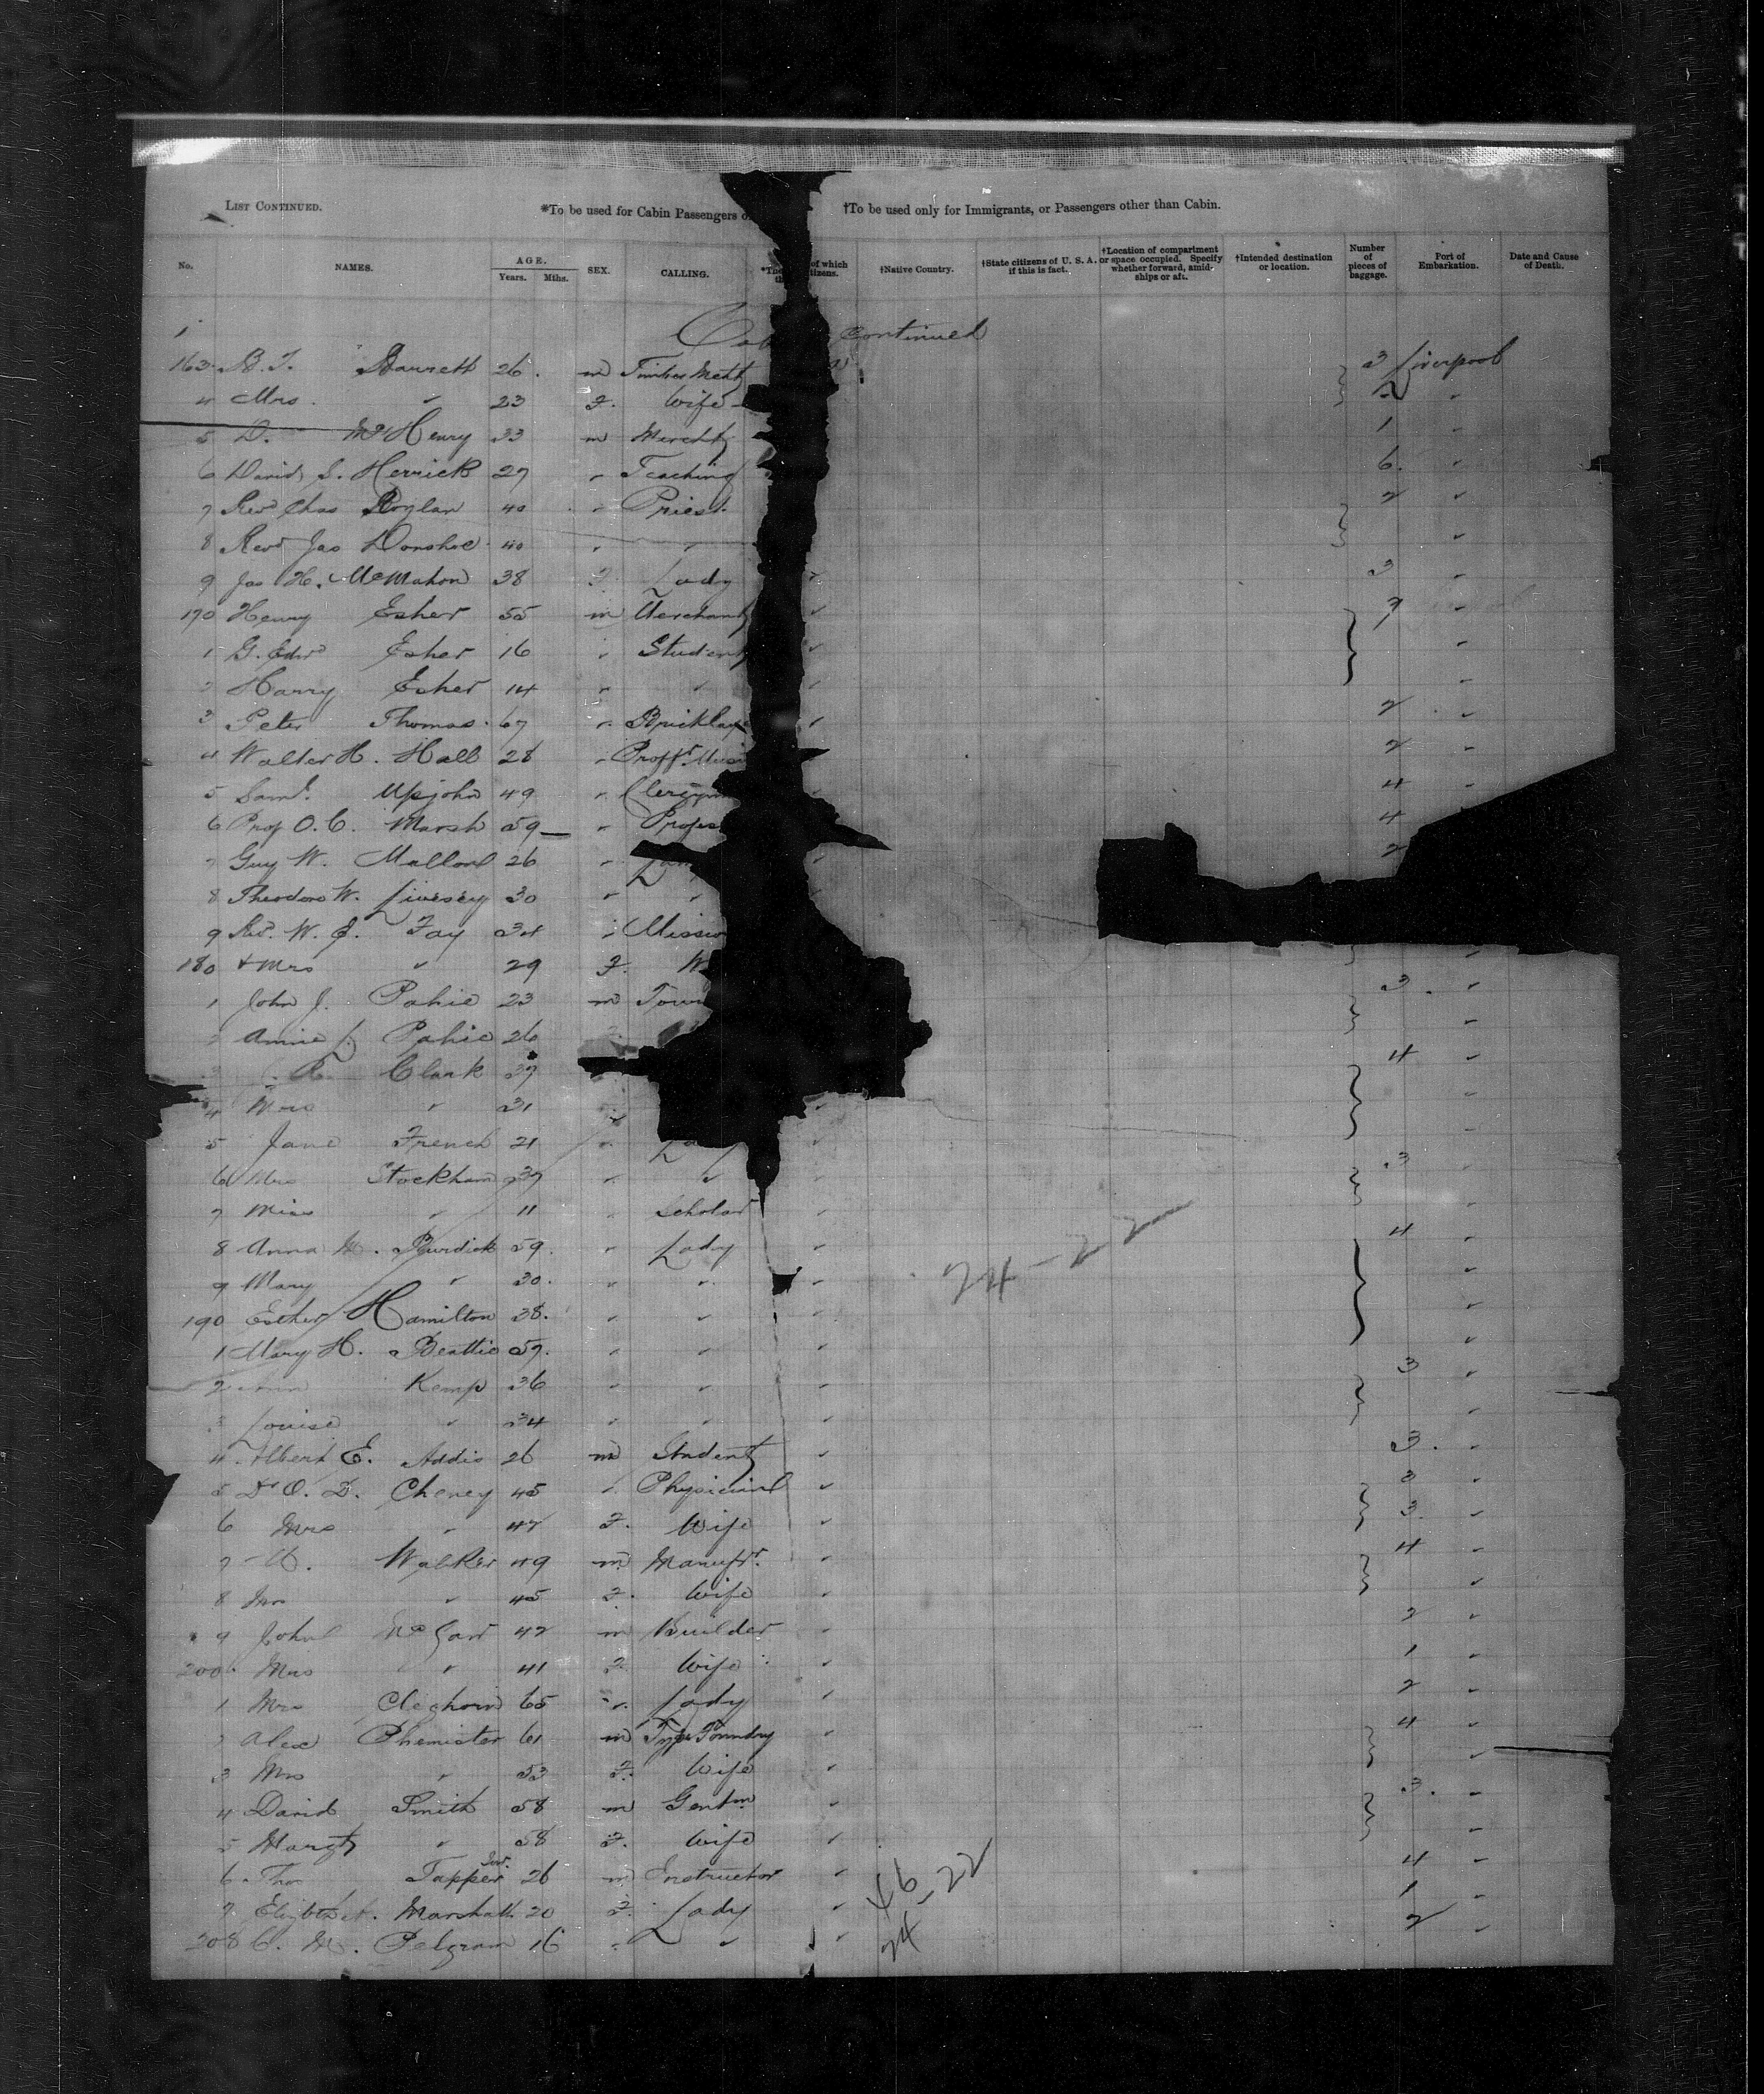 LIST CONTINUED. *To be used for Cabin Passengers †To be used only for Immigrants, or Passengers other than Cabin.
No. NAMES. AGE. Years. Mths. SEX. CALLING. of which †Native Country. †State citizens of U. S. A. if this is fact. †Location of compartment or space occupied. Specify whether forward, amidships or aft. †Intended destination or location. Number of pieces of baggage. Port of Embarkation. Date and Cause of Death.
Continued
163 Barrett 26 m 3 Liverpool
4 Mrs " 23 F. Wife "
5 D. McHenry 33 m Mercht 1 "
6 David S. Herrick 27 " Teaching 6 "
7 Revd Chas Boylan 40 " Priest 2 "
8 Revd Jas Donohoe 40 " " "
9 Jas H. McMahon 38 F. Lady " 3 "
170 Henry Esher 55 m Merchant " 7 "
1 G. Edwd Esher 16 " Student " "
2 Harry Esher 14 " " " "
3 Peter Thomas 67 " Bricklaye " 2 "
4 Walter H. Hall 28 " Proffr Musi 2 "
5 Saml. Upjohn 49 " Clergym " 4 "
6 Prof O. C. Marsh 59 " Profes 4
7 Guy W. 26 " " 2
8 Theodore W. Livesey 30 " "
9 Rev. W. E. Fay 34 " Missio
180 + Mrs " 29 F. W "
1 John J. Pahie 23 m 3 "
2 Annie L. Pahie 26 F. "
3 Clark 37 4 "
4 Mrs " 31 " "
5 Jane French 21 " " "
6 Mrs Stockham 37 " " " 3 "
7 Miss " 11 " Scholar " "
8 Anna M. Burdick 59 " Lady " 4 "
9 Mary " 30 " " " "
24-22
190 Esther Hamilton 38 " " " "
1 Mary H. Beattie 57 " " " "
2 Kemp 36 " " " 3 "
3 Louise " 34 " " " "
4 Albert E. Addis 26 m Student " 3 "
5 Dr O. D. Cheney 45 " Physician " 3 "
6 Mrs " 47 F. Wife " 3 "
7 Walker 49 m Manufr. " 4 "
8 Mrs " 45 F. Wife " "
9 John 42 m Builder " 2 "
200 Mrs " 41 F. Wife " 1 "
1 Mrs Cleghorn 65 " Lady " 2 "
2 Alex Phemister 61 m Type Foundry " 4 "
3 Mrs " 53 F. Wife " "
4 David Smith 58 m Gentm " 3 "
5 Margt " 58 F. Wife " "
6 Thos Tapper Jur. 26 m Instructor " 4 "
46-22
7 Marshall 20 F. Lady " 1 "
208 C. M. Pelgram 16 " " " 2 "
24